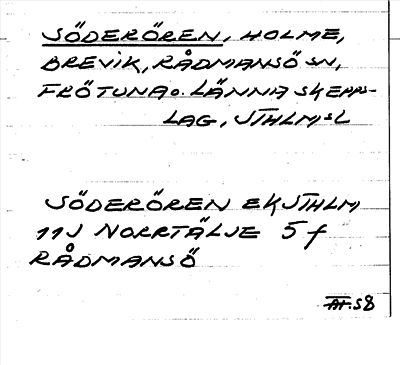 SÖDERÖREN, HOLME,
BREVIK, RÅDMANSÖ SN,
FRÖTUNA O. LÄNNA SKEPPS-
LAG, STHLMS L
SÖDERÖREN EK STHLM
11J NORRTÄLJE 5f
RÅDMANSÖ
AF.58